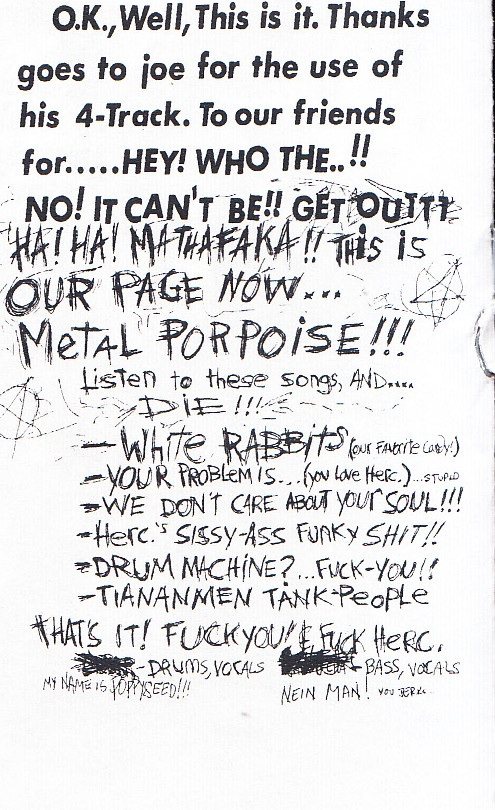 O.K.,Well,This is it. Thanks
goes to joe for the use of
his 4-Track. To our friends
for.....HEY! WHO THE..!!
NO! IT CAN'T BE!! GET OUTTT
HA! HA! MATHAFAKA!! THIS IS
OUR PAGE NOW...
METAL PORPOISE!!!
Listen to these songs, AND....
DIE!!!
-White RABBITS (OUR FAVORITE CANDY!)
-YOUR PROBLEM IS...(you love Herc.)...STUPID
-WE DON'T CARE ABOUT YOUR SOUL!!!
-Herc.'s SISSY-ASS FUNKY SHIT!!
-DRUM MACHINE?...FUCK-YOU!!
-TIANANMEN TANK-PEOPLE
THAT'S IT! FUCK YOU! & FUCK HERC.
-DRUMS, VOCALS -BASS, VOCALS
MY NAME IS POPPYSEED!!! NEIN MAN! YOU